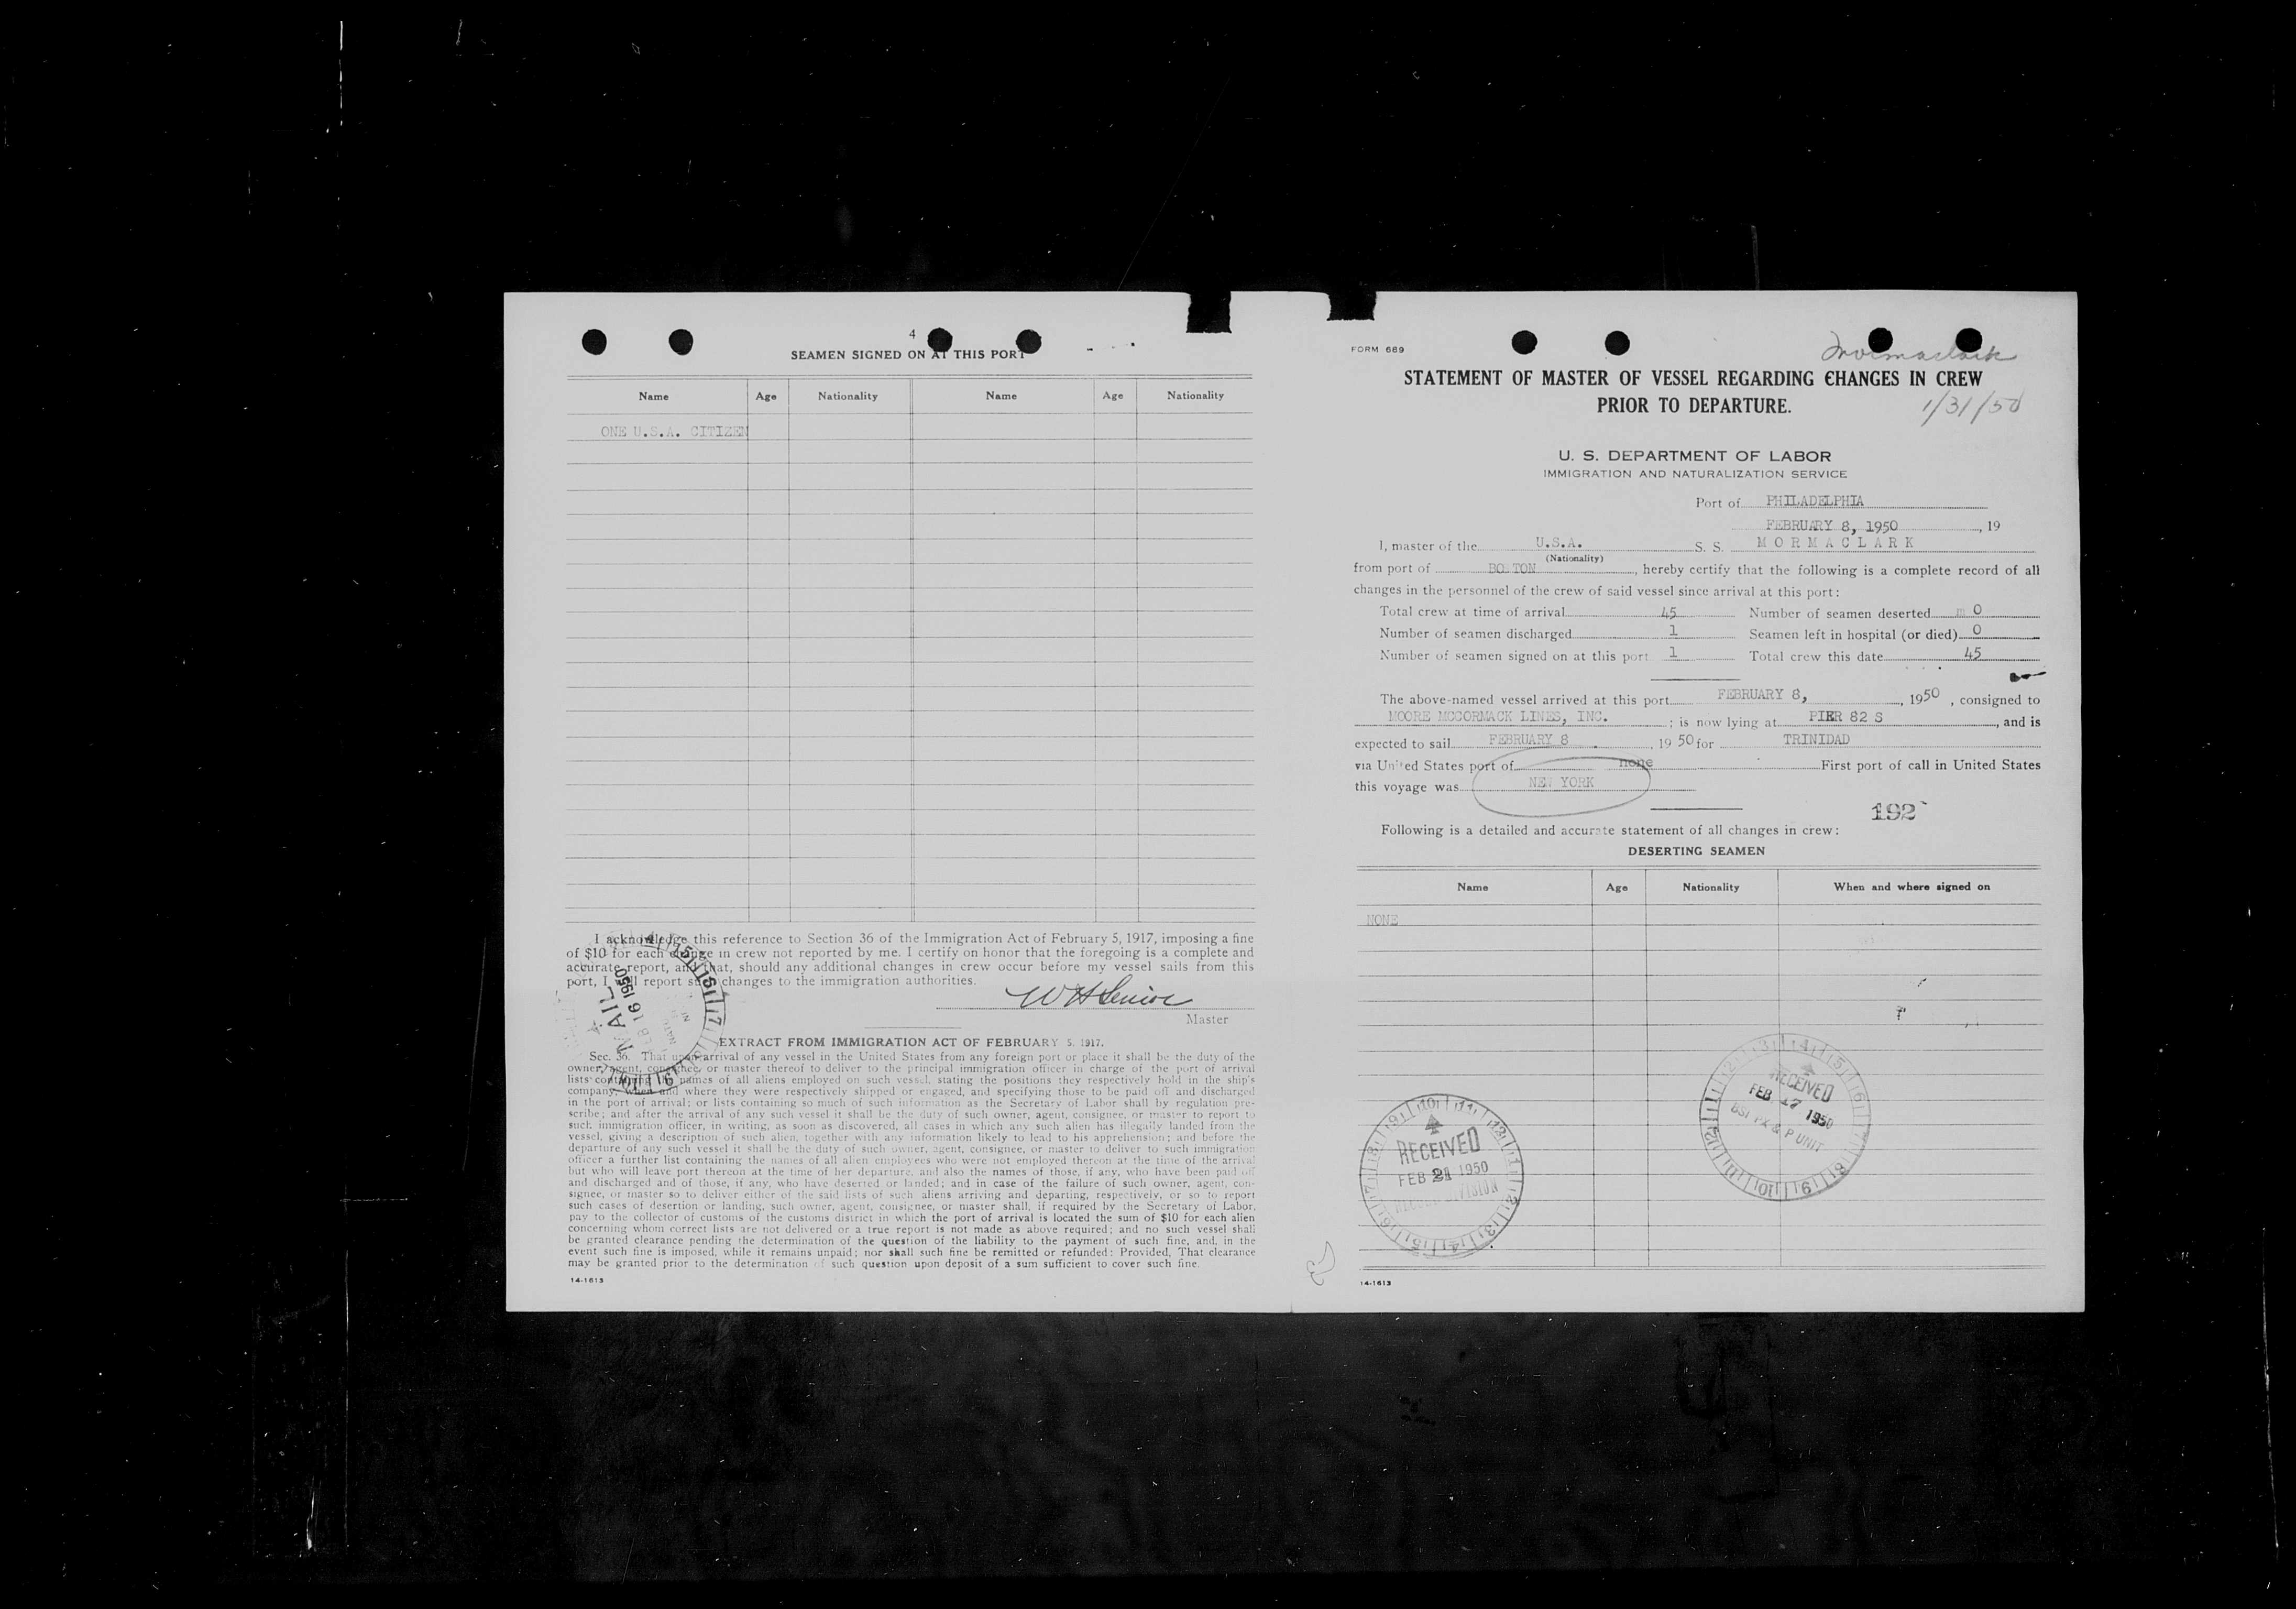 4
SEAMEN SIGNED ON AT THIS PORT
Name Age Nationality Name Age Nationality
ONE U.S.A. CITIZEN
I acknowledge this reference to Section 36 of the Immigration Act of February 5, 1917, imposing a fine
of $10 for each change in crew not reported by me. I certify on honor that the foregoing is a complete and
accurate report, and that, should any additional changes in crew occur before my vessel sails from this
port, I will report such changes to the immigration authorities.
W H Senior
Master
MAIL
FEB 16 1950
EXTRACT FROM IMMIGRATION ACT OF FEBRUARY 5, 1917.
Sec. 36. That upon arrival of any vessel in the United States from any foreign port or place it shall be the duty of the
owner, agent, consignee, or master thereof to deliver to the principal immigration officer in charge of the port of arrival
lists containing the names of all aliens employed on such vessel, stating the positions they respectively hold in the ship's
company, when and where they were respectively shipped or engaged, and specifying those to be paid off and discharged
in the port of arrival; or lists containing so much of such information as the Secretary of Labor shall by regulation pre-
scribe; and after the arrival of any such vessel it shall be the duty of such owner, agent, consignee, or master to report to
such immigration officer, in writing, as soon as discovered, all cases in which any such alien has illegally landed from the
vessel, giving a description of such alien, together with any information likely to lead to his apprehension; and before the
departure of any such vessel it shall be the duty of such owner, agent, consignee, or master to deliver to such immigration
officer a further list containing the names of all alien employees who were not employed thereon at the time of the arrival
but who will leave port thereon at the time of her departure, and also the names of those, if any, who have been paid off
and discharged and of those, if any, who have deserted or landed; and in case of the failure of such owner, agent, con-
signee, or master so to deliver either of the said lists of such aliens arriving and departing, respectively, or so to report
such cases of desertion or landing, such owner, agent, consignee, or master shall, if required by the Secretary of Labor,
pay to the collector of customs of the customs district in which the port of arrival is located the sum of $10 for each alien
concerning whom correct lists are not delivered or a true report is not made as above required; and no such vessel shall
be granted clearance pending the determination of the question of the liability to the payment of such fine, and, in the
event such fine is imposed, while it remains unpaid; nor shall such fine be remitted or refunded: Provided, That clearance
may be granted prior to the determination of such question upon deposit of a sum sufficient to cover such fine.
14-1613
FORM 689
Mormaclark
STATEMENT OF MASTER OF VESSEL REGARDING CHANGES IN CREW
PRIOR TO DEPARTURE.
1/31/50
U. S. DEPARTMENT OF LABOR
IMMIGRATION AND NATURALIZATION SERVICE
Port of PHILADELPHIA
FEBRUARY 8, 1950, 19
I, master of the U.S.A. S. S. MORMACLARK
(Nationality)
from port of BOSTON, hereby certify that the following is a complete record of all
changes in the personnel of the crew of said vessel since arrival at this port:
Total crew at time of arrival 45 Number of seamen deserted 0
Number of seamen discharged 1 Seamen left in hospital (or died) 0
Number of seamen signed on at this port 1 Total crew this date 45
The above-named vessel arrived at this port FEBRUARY 8, , 1950 , consigned to
MOORE MCCORMACK LINES, INC. ; is now lying at PIER 82 S , and is
expected to sail FEBRUARY 8 , 19 50 for TRINIDAD
via United States port of none First port of call in United States
this voyage was NEW YORK
192
Following is a detailed and accurate statement of all changes in crew:
DESERTING SEAMEN
Name Age Nationality When and where signed on
NONE
RECEIVED
FEB 17 1950
BSI PX & P UNIT
RECEIVED
FEB 21 1950
14-1613